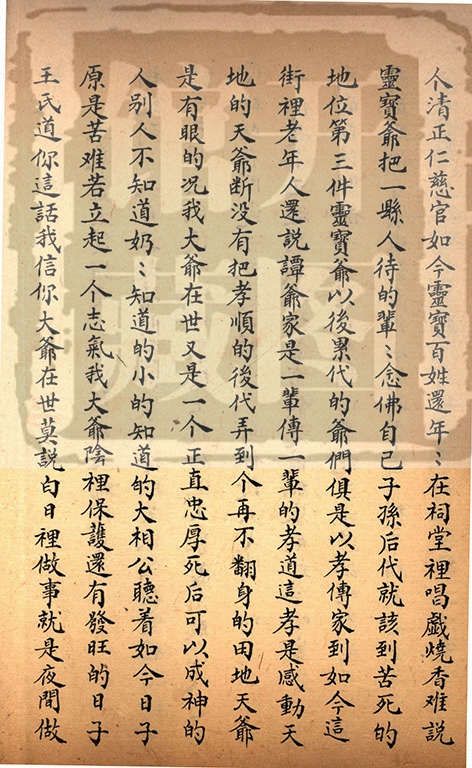 个清正仁慈官如今靈寶百姓還年〻在祠堂裡唱戱燒香难說
靈寶爺把一縣人待的輩〻念佛自己子孫后代就該到苦死的
地位第三件靈寶爺以後累代的爺們俱是以孝傳家到如今這
街裡老年人還說譚爺家是一輩傳一輩的孝道這孝是感動天
地的天爺断没有把孝順的後代弄到个再不翻身的田地天爺
是有眼的况我大爺在世又是一个正直忠厚死后可以成神的
人别人不知道奶〻知道的小的知道的大相公聽着如今日子
原是苦难若立起一个志氣我大爺陰裡保護還有發旺的日子
王氏道你這話我信你大爺在世莫説白日裡做事就是夜間做